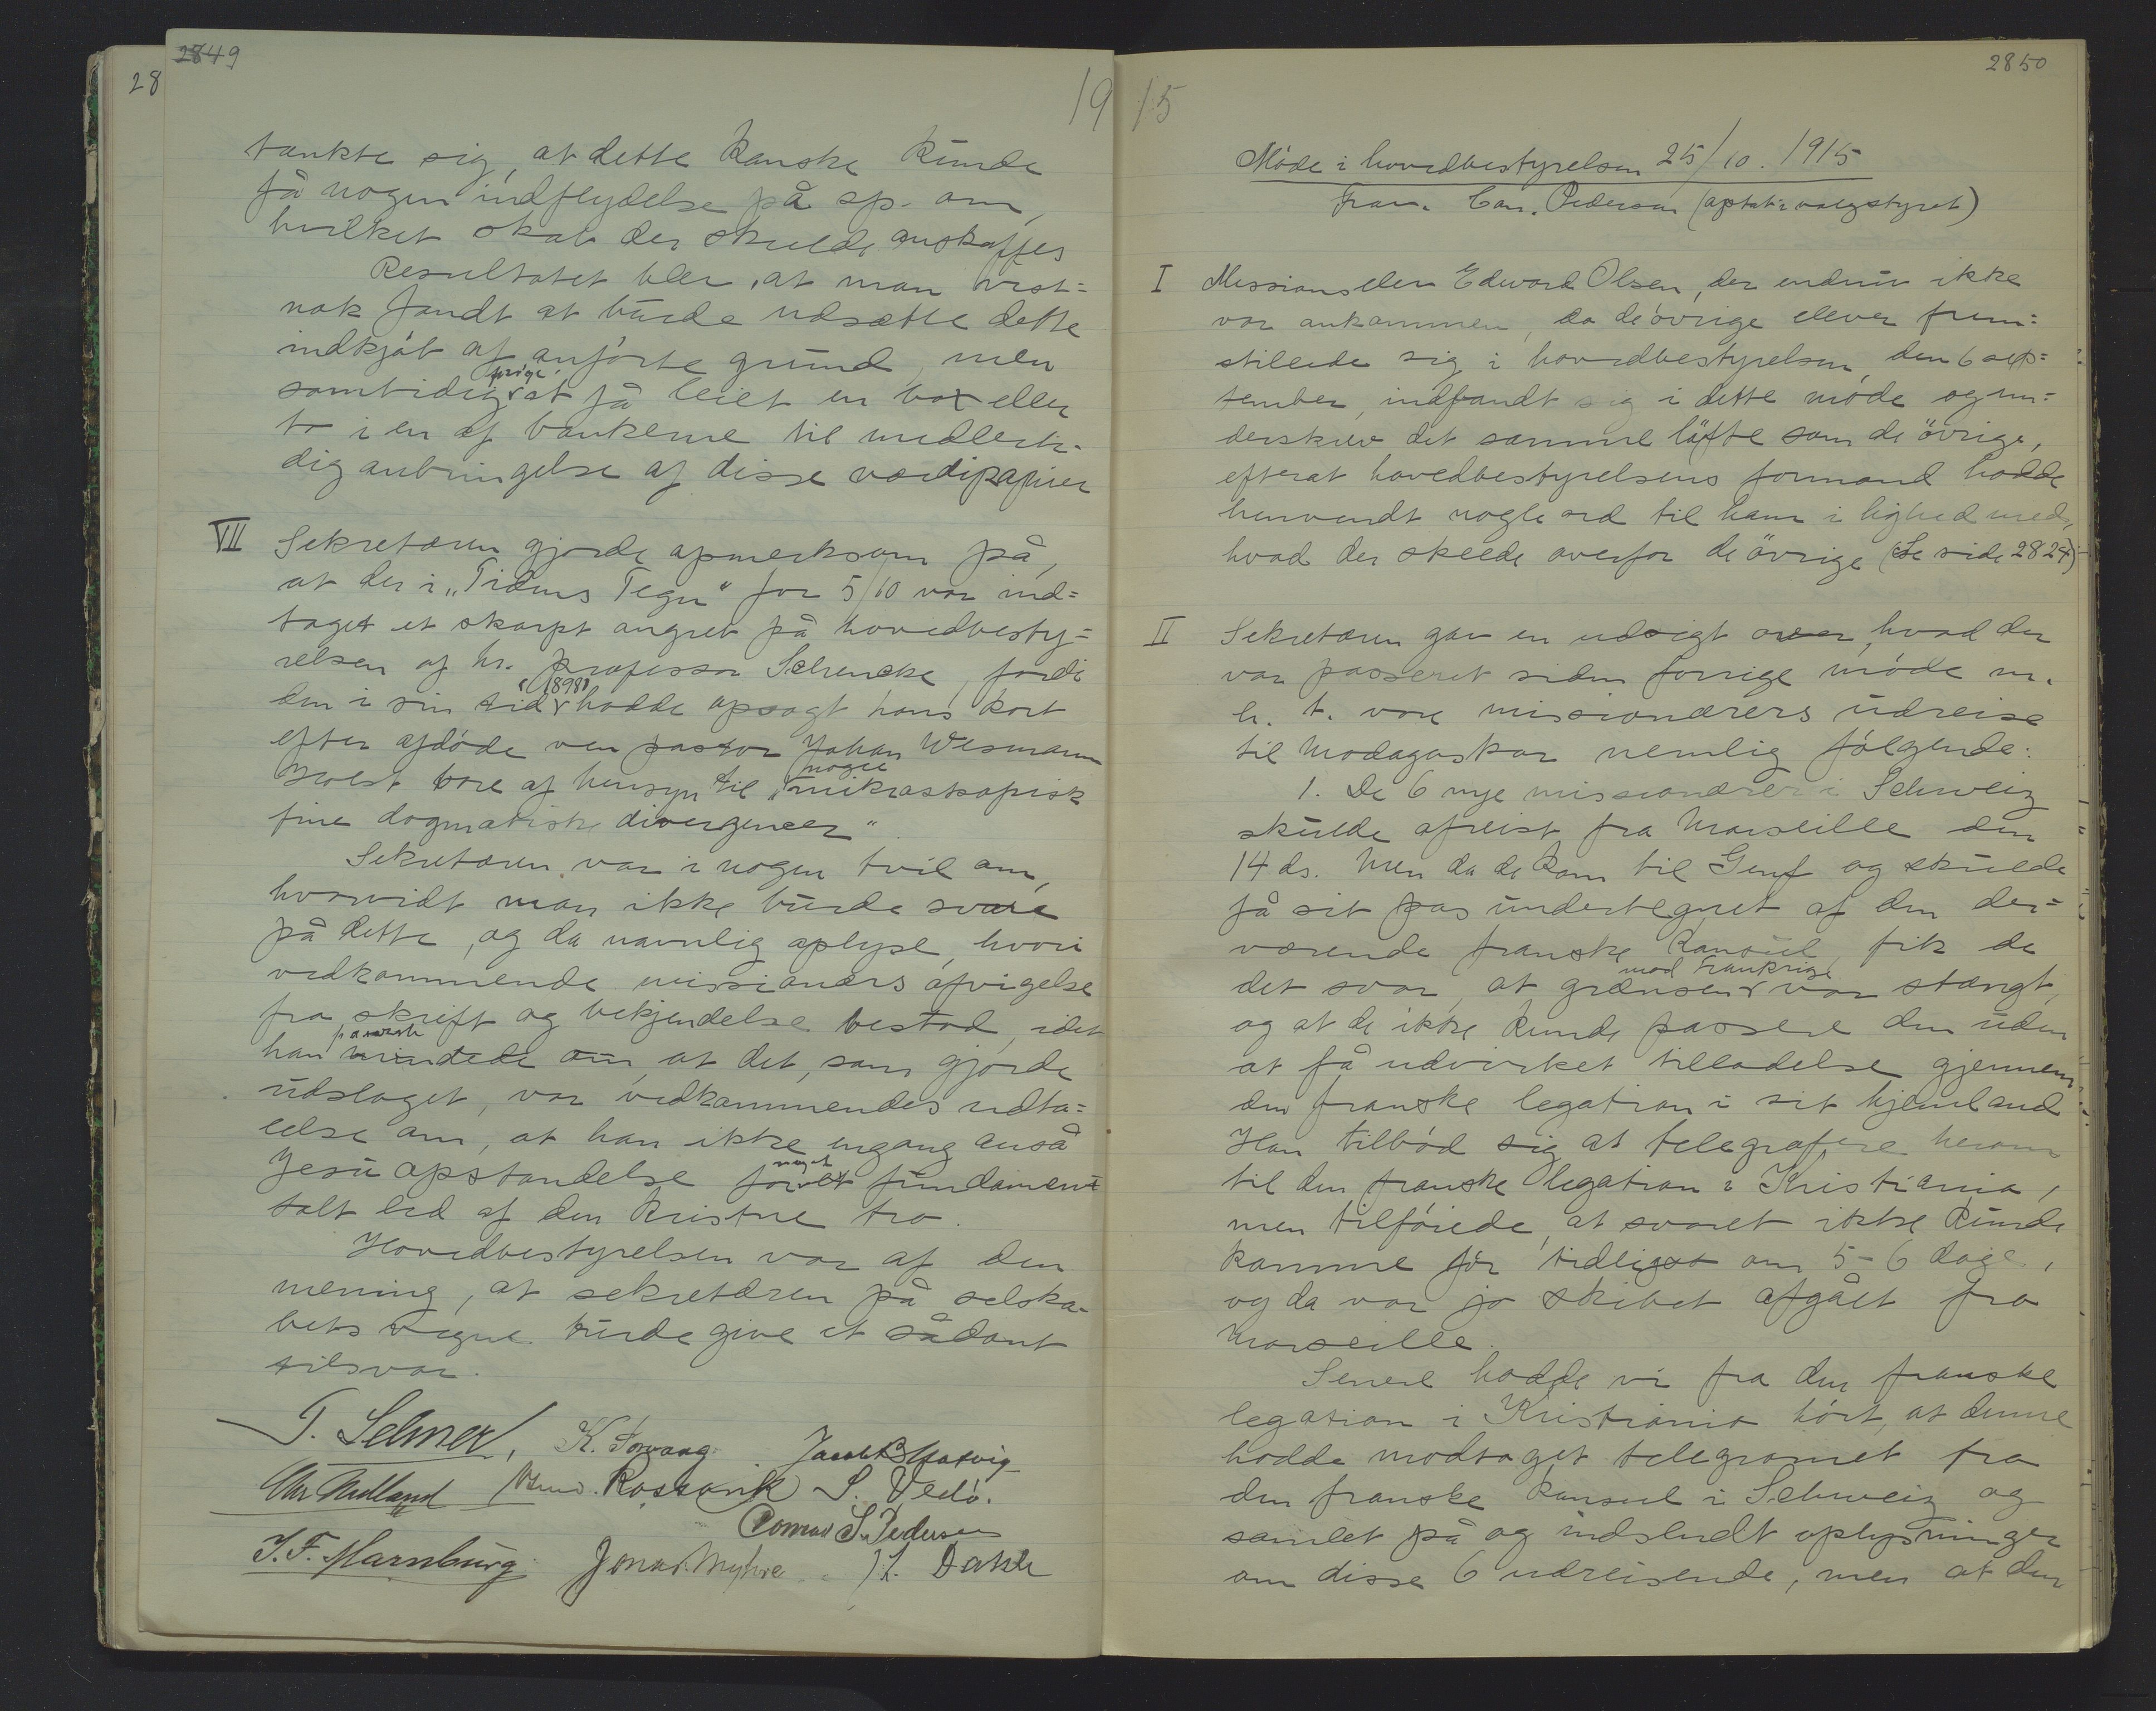 2849
28
19
tænkte sig, at dette kanske kunde
få nogen indflydelse på sp. om,
hvilket skab der skulde anskaffes
Resultatet blev, at man vist=
nok fandt at burde udsætte dette
indkjøb af anførte grund, men
samtidig prøve at få leiet en box eller
to i en af bankerne til midlerti-
dig anbringelse af disse værdipapirer
VII Sekretæren gjorde opmerksom på,
at der i „Tidens Tegn" for 5/10 var ind=
taget et skarpt angreb på hovedbesty=
relsen af hr. professor Schencke, fordi
den i sin tid (1898) hadde opsagt hans kort
efter afdøde ven pastor Johan Wesmann
Holst bare af hensyn til „nogle mikroskopisk
fine dogmatiske divergencer".
Sekretæren var i nogen tvil om,
hvorvidt man ikke burde svare
på dette, og da navnlig oplyse, hvori
vedkommende missionærs afvigelse
fra skrift og bekjendelse bestod, idet
han mindede om påviste at det, som gjorde
udslaget, var vedkommendes udta=
lelse om, at han ikke engang anså
Jesu opstandelse for noget fundamen=
talt led af den kristne tro.
Hovedbestyrelsen var af den
mening, at sekretæren på selska-
bets vegne burde give et sådant
tilsvar.
T. Selmer, K. Torvang Jacob B Natvig
Chr Nedland Rossavik S. Vedø.
Conrad S. Pedersen
J. F. Marnburg Jonas Myhre H. Dahle
15
2850
Møde i hovedbestyrelsen 25/10. 1915
Frav. Con. Pedersen (optat i valgstyret)
I Missionselev Edvard Olsen, der endnu ikke
var ankommen, da de øvrige elever frem=
stillede sig i hovedbestyrelsen den 6 sep=
tember, indfandt sig i dette møde og un=
derskrev det samme løfte som de øvrige,
efterat hovedbestyrelsens formand hadde
henvendt nogle ord til ham i lighed med,
hvad der skeede overfor de øvrige (Se side 2824)
II Sekretæren gav en udsigt over, hvad der
var passeret siden forrige møde m.
h. t. vore missionærers udreise
til Madagaskar nemlig følgende:
1. De 6 nye missionærer i Schweiz
skulde afreist fra Marseille den
14 ds. Men da de kom til Genf og skulde
få sit pas undertegnet af den der=
værende franske konsul, fik de
det svar, at grænsen mod Frankrige var stængt,
og at de ikke kunde passere den uden
at få udvirket tilladelse gjennem
den franske legation i sit hjemland
Han tilbød sig at telegrafere herom
til den franske legation i Kristiania,
men tilføiede, at svaret ikke kunde
komme før tidligst om 5-6 dage,
og da var jo skibet afgået fra
Marseille.
Senere hadde vi fra den franske
legation i Kristiania hørt, at denne
hadde modtaget telegramet fra
den franske konsul i Schweiz og
samlet på og indsendt oplysninger
om disse 6 udreisende, men at den